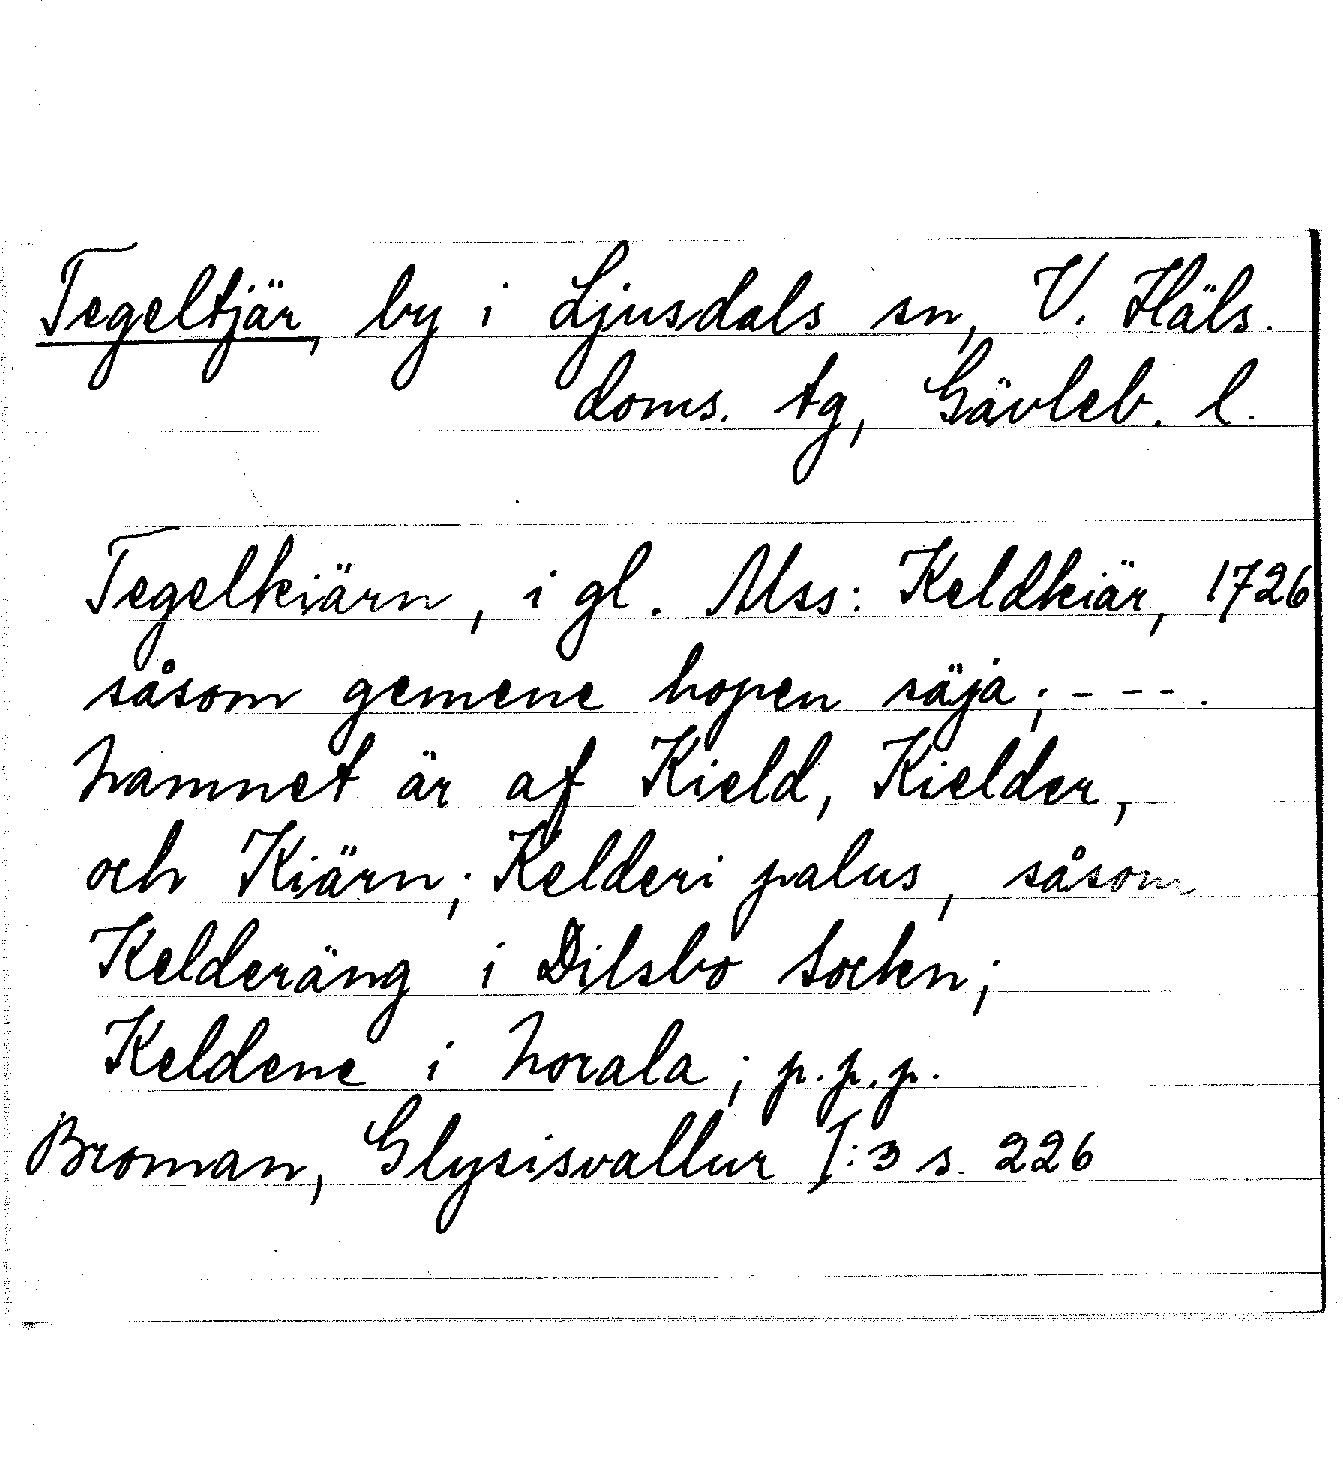 Tegeltjär, by i Ljusdals sn, V. Häls.
doms. tg, Gävleb. l.
Tegelkiärn, i gl. Mss: Keldkiär, 1726
såsom gemene hopen säja; - - - .
Namnet är af Kield, Kielder,
och Kiärn; Kelderi palus, såsom
Kelderäng i Dilsbo Sockn;
Keldene i Norala; p.p.p.
Broman, Glysisvallur I:3 s. 226